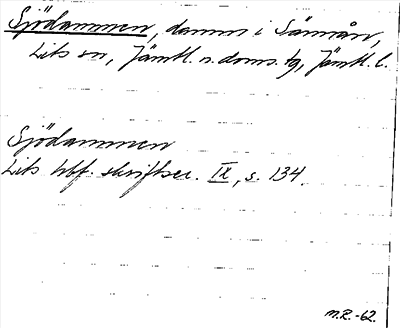 Sjödammen, damm i Sännån,
Lits sn, Jämtl. n. doms. tg, Jämtl. l.
Sjödammen
Lits hbf. skriftser. IX, s. 134.
M.R.-62.